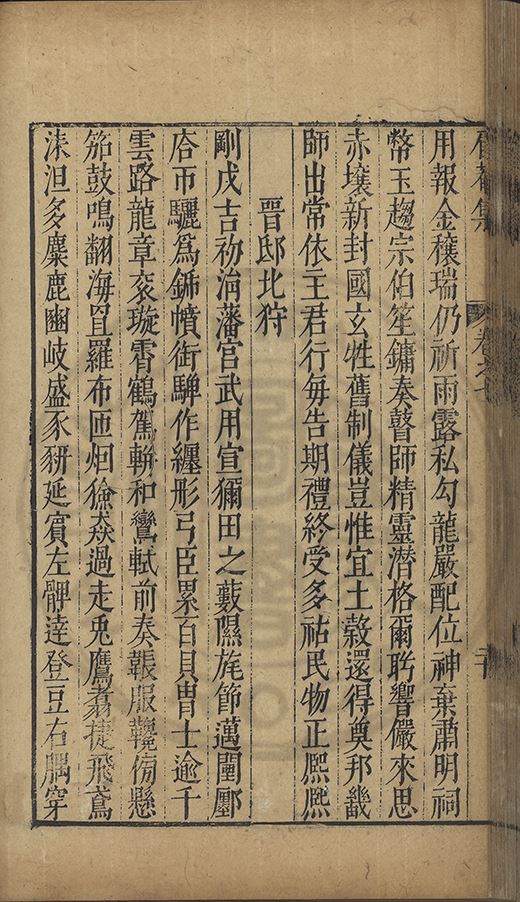 用報金穰瑞仍祈雨露私勾龍嚴配位神棄肅明祠
幣玉趨宗伯笙鏞奏瞽師精靈潛格爾肸響儼來思
赤壤新封國玄牲舊制儀豈惟宜土穀還得奠邦畿
師出常依主君行每告期禮終受多祜民物正熈熈
晋邸北狩
剛戊吉初淌藩官武用宣獮田之藪隰旄節邁闉鄽
㕎帀驪爲鉘幩街驊作纏形弓臣累百貝冑士逾千
雲路龍章衮璇霄鶴駕軿和鸞軾前奏韔服鞶傍懸
笳鼓鳴翻海罝羅布匝烟獫猋過走兎鷹翥捷飛鳶
洡沮多麋鹿豳岐盛豕豜延賓左髀達登豆右腢穿